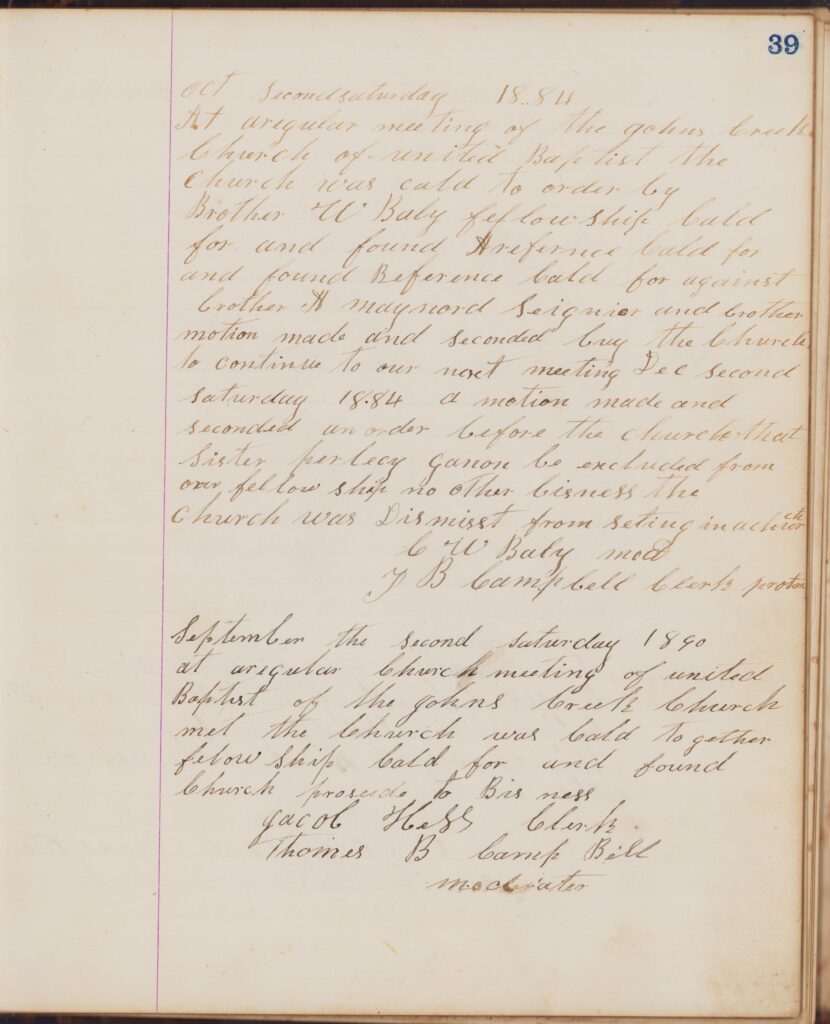 39
oct Secondsaturday 18..84
At aregular meeting of the gohns Creek
Church of united Baptist the
Church was cald to order by
Brother W Baly fellowship Cald
for and found A refernce Cald for
and found Reference Cald for against
brother A maynord Seignior and brother
motion made and seconded buy the Church
to continue to our next meeting Dec second
saturday 18.84 a motion made and
seconded an order before the church that
Sister perlecy ganon be excluded from
our fellow ship no other bisness the
Church was Dismisst from seting in
C W Baly mod
B Campbell Clerk protem
September the second saturday 1890
at aregular Church meeting of united
Baptist of the gohns Creek Church
met the Church was Cald together
felow ship Cald for and found
Church prosede to Bis ness
gacob Hess Clerk
Thomes B Camp Bell
moderater